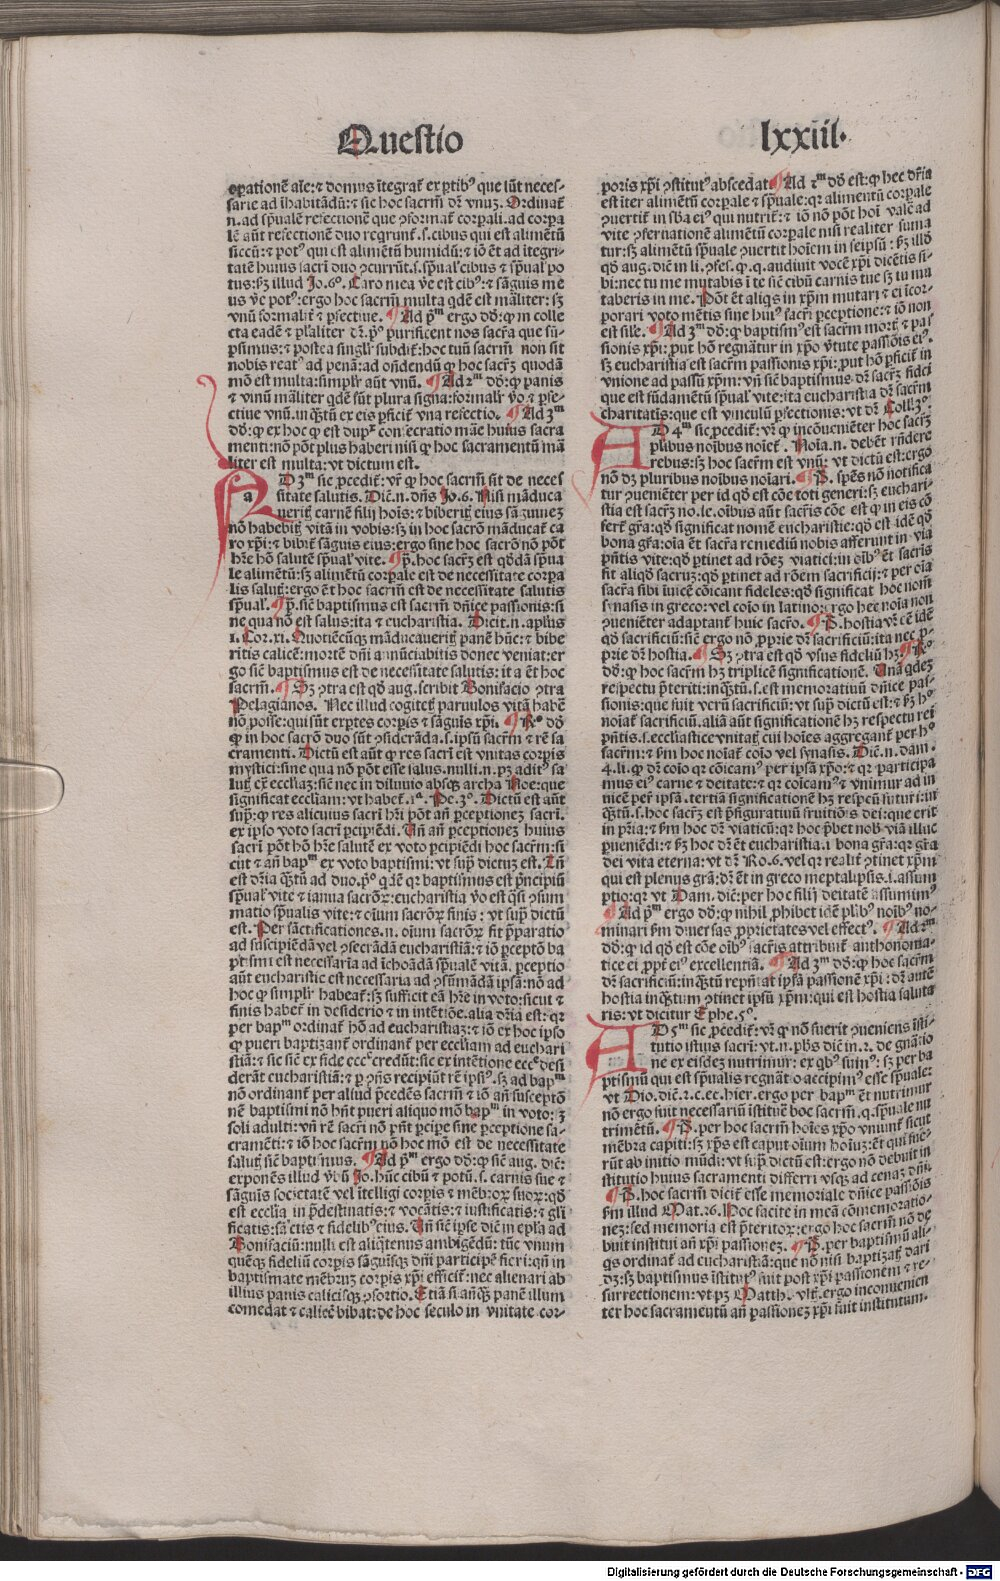 Questio lxxiii.
operationē aīe: ⁊ domus ītegrat̄ ex ꝑtibꝰ que sūt neces-
sarie ad īhabitādū: ⁊ sic hoc sacrm̄ dr̄ vnuz. Ordinat̄
.n. ad spūalē refectionē que ꝯformat̄ corporali. ad corpa
lē aūt refectionē duo reqrunt̄ .s. cibus qui est alimētū
siccū: ⁊ potꝰ qui est alimētū humidū: ⁊ iō ēt ad ītegri-
tatē huius sacrī duo ꝯcurrūt .s. spūalꝭ cibus ⁊ spūalꝭ po
tus: ẜꝫ illud Jo. 6º. Caro mea ve est cibꝰ: ⁊ sāguis me
us ve potꝰ: ergo hoc sacrm̄ multa qdē est māliter: sꝫ
vnū formalīt ⁊ ꝑfectiue. ¶ Ad pᵐ ergo dō: ꝙ in colle
cta eadē ⁊ pl̄aliter dr̄. pº purificent nos sacra que sū-
psimus: ⁊ postea singl̄r subdit̄: hoc tuū sacrm̄ non sit
nobis reatꝰ ad penā: ad ondendū ꝙ hoc sacrꝫ quodā
mō est multa: simplr̄ aūt vnū. ¶ Ad 2ᵐ dō: ꝙ panis
⁊ vinū māliter qdē sūt plura signa: formalr̄ vō ⁊ ꝑfe-
ctiue vnū. inqꝫtū ex eis ꝑficit̄ vna refectio. ¶ Ad 3ᵐ
dō: ꝙ ex hoc ꝙ est dupꝉ consecratio māe huius sacra
menti: nō pōt plus haberi nisi ꝙ hoc sacramentū mā
liter est multa: vt dictum est.
AD 3ᵐ sic ꝓcedit̄: vr̄ ꝙ hoc sacrm̄ sit de neces
sitate salutis. Dic̄ .n. dn̄s Jo. 6. Nisi māduca
ueritꝭ carnē filij hoīs: ⁊ biberitꝭ eius sāguinez
nō habebitꝭ vitā in vobis: sꝫ in hoc sacrō māducat̄ ca
ro xp̄i: ⁊ bibit̄ sāguis eius: ergo sine hoc sacrō nō pōt
hr̄e hō salutē spūalꝭ vite. ¶ P̄. hoc sacrꝫ est qōdā spūa
le alimētū: sꝫ alimētū corpale est de necessitate corpa
lis salutꝭ: ergo ēt hoc sacrm̄ est de necessitate salutis
spūalꝭ. ¶ P̄. sic̄ baptismus est sacrm̄ dn̄ice passionis: si
ne qua nō est salus: ita ⁊ eucharistia. Dicit .n. apłus
1. Cor. xi. Quotiēcūqꝫ māducaueritꝭ panē hūc: ⁊ bibe
ritis calicē: mortē dn̄i annūciabitis donec veniat: er-
go sic̄ baptismus est de necessitate salutis: ita ēt hoc
sacrm̄. ¶ Sꝫ ꝯtra est qō aug. scribit Bonifacio ꝯtra
Pelagianos. Nec illud cogitetꝭ paruulos vitā habē
nō posse: qui sūt exp̄tes corpis ⁊ sāguis xp̄i. ¶ Rº dō
ꝙ in hoc sacro duo sūt ꝯsiderāda .s. ipsū sacrm̄ ⁊ rē sa
cramenti. Dictū est aūt ꝙ res sacri est vnitas corpis
mystici: sine qua nō pōt esse salus. nulli .n. pꝫ aditꝰ sa
lutꝭ ex̄ eccliaꝫ: sic̄ nec in diluuio absqꝫ archa Noe: que
significat eccliam: vt habet̄. 1ª. Pe. 3º. Dictū est aūt
sup̄: ꝙ res alicuius sacri hr̄i pōt an̄ ꝑceptionez sacri.
ex ipso voto sacri ꝑcipiēdi. Un̄ an̄ ꝑceptionez huius
sacri pōt hō hr̄e salutē ex voto ꝑcipiēdi hoc sacrm̄: si
cut ⁊ an̄ bapᵐ ex voto baptismi: vt sup̄ dictuz est. Tn̄
est dr̄ia qꝫtū ad duo. pº qdē qr baptismus est p̄ncipiū
spūalꝭ vite ⁊ ianua sacroꝝ: eucharistia vō est qsi ꝯsum
matio spūalis vite: ⁊ oīum sacroꝝ finis: vt sup̄ dictū
est. Per sāctificationes .n. oīum sacroꝝ fit p̄paratio
ad suscipiēdā vel ꝯsecrādā eucharistiā: ⁊ iō ꝑceptō ba
ptismi est necessaria ad īchoādā spūalē vitā. ꝑceptio
aūt eucharistie est necessaria ad ꝯsumādā ipsā: nō ad
hoc ꝙ simplr̄ habeat̄: sꝫ sufficit eā hr̄e in voto: sicut ⁊
finis habet̄ in desiderio ⁊ in intētiōe. alia dr̄ia est: qr
per bapᵐ ordinat̄ hō ad eucharistiaꝫ: ⁊ iō ex hoc ipso
ꝙ pueri baptizant̄ ordinant̄ per eccliam ad euchari
stiā: ⁊ sic sic̄ ex fide ecce̅ credūt: sic ex intētione ecce̅ desi
derāt eucharistiā: ⁊ ꝑ ꝯn̄s recipiūt rē ipsiꝰ. sꝫ ad bapᵐ
nō ordinant̄ per aliud p̄cedēs sacrm̄ ⁊ iō an̄ susceptō
nē baptismi nō hn̄t pueri aliquo mō bapᵐ in voto: ꝫ
soli adulti: vn̄ rē sacri nō pn̄t ꝑcipe sine ꝑceptione sa-
cramēti: ⁊ iō hoc sacrm̄ nō hoc mō est de necessitate
salutꝭ sic̄ baptismus. ¶ Ad pᵐ ergo dō: ꝙ sic̄ aug. dic̄:
exponēs illud vbū Jo. hūc cibū ⁊ potū .s. carnis sue ⁊
sāguis societatē vel ītelligi corpis ⁊ mēbroꝝ suoꝝ: qō
est ecclia in p̄destinatis: ⁊ vocatis: ⁊ iustificatis: ⁊ glī
ficatis: sāctis ⁊ fidelibꝰ eius. Un̄ sic̄ ipse dic̄ in epła ad
Bonifaciū: nulli est aliqtenus ambigēdū: tūc vnum
quēqꝫ fideliū corpis sāguisqꝫ dn̄i participē fieri: qn̄ in
baptismate mēbruz corpis xp̄i efficit̄: nec alienari ab
illius panis calicisqꝫ ꝯsortio. Etiā si anqꝫ panē illum
comedat ⁊ calicē bibat: de hoc seculo in vnitate cor-
poris xp̄i ꝯstitutꝰ abscedat. ¶ Ad 2ᵐ dō est: ꝙ hec dr̄ia
est īter alimētū corpale ⁊ spūale: qr alimentū corpale
ꝯuertit̄ in sbā eiꝰ qui nutrit̄: ⁊ iō nō pōt hoī valē ad
vite ꝯseruationē alimētū corpale nisi realiter suma
tur: sꝫ alimētū spūale ꝯuertit hoīem in seipsū: ẜꝫ illō
qō aug. dic̄ in li. ꝯfes. ꝙ .q. audiuit vocē xp̄i dicētis si-
bi: nec tu me mutabis ī te sic̄ cibū carnis tue sꝫ tu mu
taberis in me. Pōt ēt aliqs in xp̄m mutari ⁊ ei īcor-
porari voto mētis sine huiꝰ sacri ꝑceptione: ⁊ iō non
est sile. ¶ Ad 3ᵐ dō: ꝙ baptismꝰ est sacrm̄ mortꝭ ⁊ pas
sionis xp̄i: prout hō regnatur in xp̄o v̄tute passiōis eiꝰ.
sꝫ eucharistia est sacrm̄ passionis xp̄i: prout hō ꝑficit̄ in
vnione ad passū xp̄m: vn̄ sic̄ baptismus dr̄ sacrꝫ fidei
que est fūdamētū spūalꝭ vite: ita eucharistia dr̄ sacrm̄
charitatis: que est vinculū ꝑfectionis: vt dr̄ Coll. 3º.
AD 4ᵐ sic ꝓcedit̄: vr̄ ꝙ incōueniēter hoc sacrꝫ
plibus noībus noīet̄. Noīa .n. debēt rn̄dere
rebus: sꝫ hoc sacrm̄ est vnū: vt dictū est: ergo
nō dꝫ pluribus noībus noīari. ¶ P̄. spēs nō notifica
tur ꝯueniēter per id qō est cōe toti generi: sꝫ euchari-
stia est sacrꝫ no. le. oībus aūt sacris cōe est ꝙ in eis cō
fert̄ gra: qō significat nomē eucharistie: qō est idē qō
bona gra: oīa ēt sacra remediū nobis afferunt in via
pn̄tis vite: qō ꝑtinet ad rōez viatici: in oībꝰ ēt sacris
fit aliqō sacruz: qō ꝑtinet ad rōem sacrificij: ⁊ per oīa
sacra sibi īuicē cōicant fideles: qō significat hoc nom̄
synasis in greco: vel coīo in latino: ergo hec noīa non
ꝯueniēter adaptant̄ huic sacro. ¶ P̄. hostia vr̄ cē idē
qō sacrificiū: sic̄ ergo nō ꝓprie dr̄ sacrificiū: ita nec ꝓ-
prie dr̄ hostia. ¶ Sꝫ ꝯtra est qō vsus fideliū hꝫ. ¶ Rº
dō: ꝙ hoc sacrm̄ hꝫ triplicē significationē. Unā qdez
respectu p̄teriti: inqꝫtū .s. est memoratiuū dn̄ice pas-
sionis: que fuit verū sacrificiū: vt sup̄ dictū est: ⁊ ẜm hº
noīat̄ sacrificiū. aliā aūt significationē hꝫ respectu rei
pn̄tis .s. ecclīastice vnitatꝭ cui hoīes aggregant̄ per hº
sacrm̄: ⁊ ẜm hoc noīat̄ coīo vel synasis. Dic̄ .n. dam.
4. li. ꝙ dr̄ coīo qr cōicamꝰ per ipsā xp̄o: ⁊ qr participa
mus eiꝰ carne ⁊ deitate: ⁊ qr cōicamꝰ ⁊ vnimur ad in
uicē per ipsā. tertiā significationē hꝫ respectu futuri: in
qꝫtū .s. hoc sacrꝫ est p̄figuratiuū fruitiōis dei: que erit
in pr̄ia: ⁊ ẜm hoc dr̄ viaticū: qr hoc p̄bet nobꝭ viā illuc
ꝑueniēdi: ⁊ ẜꝫ hoc dr̄ ēt eucharistia .i. bona gra: qr gra
dei vita eterna: vt dr̄ Ro. 6. vel qr realiꝭ ꝯtinet xp̄m
qui est plenus gra: dr̄ ēt in greco meptalipsis .i. assum
ptio: qr vt Dam. dic̄: per hoc filij deitatē assumimꝰ
¶ Ad pᵐ ergo dō: ꝙ nihil ꝓhibet idē plibꝰ noībꝰ no-
minari ẜm diuersas ꝓprietates vel effectꝰ. ¶ Ad 2ᵐ
dō: ꝙ id qō est cōe oībꝰ sacris attribuit̄ anthonoma-
tice ei ꝓpt̄ eiꝰ excellentiā. ¶ Ad 3ᵐ dō: ꝙ hoc sacrm̄
dr̄ sacrificiū: inqꝫtum rep̄ntat ipsā passionē xp̄i: dr̄ autē
hostia inqꝫtum ꝯtinet ipsū xp̄m: qui est hostia saluta
ris: vt dicitur Ephe. 5º.
AD 5ᵐ sic ꝓcedit̄: vr̄ ꝙ nō fuerit ꝯueniens īsti-
tutio istius sacri: vt .n. phs dic̄ in. 2. de gnātio
ne ex eisdez nutrimur: ex qbꝰ sumꝰ: sꝫ per ba
ptismū qui est spūalis regnātio accipimꝰ esse spūale:
vt Dio. dic̄. 2. c. ec. hier. ergo per bapᵐ ēt nutrimur
nō ergo fuit necessariū īstituē hoc sacrm̄ .q. spūale nu
trimētū. ¶ P̄. per hoc sacrm̄ hoīes xp̄o vniunt̄ sicut
mēbra capiti: sꝫ xp̄s est caput oīum hoīuz: ēt qui fue-
rūt ab initio mūdi: vt sup̄ dictū est: ergo nō debuit in
stitutio huius sacramenti differri vsqꝫ ad cenaꝫ dn̄i.
¶ P̄. hoc sacrm̄ dicit̄ esse memoriale dn̄ice passiōis
ẜm illud Mat. 26. Hoc facite in meā cōmemoratio-
nez: sed memoria est p̄teritoꝝ: ergo hoc sacrm̄ nō de-
buit institui an̄ xp̄i passionez. ¶ P̄. per baptismū ali-
qs ordinat̄ ad eucharistiā: que nō nisi baptizatꝭ dari
dꝫ: sꝫ baptismus īstitutꝰ fuit post xp̄i passionem ⁊ re-
surrectionem: vt pꝫ Matth. vltꝭ. ergo inconuenien
ter hoc sacramentū an̄ passionez xp̄i fuit institutum.
Digitalisierung gefördert durch die Deutsche Forschungsgemeinschaft - DFG